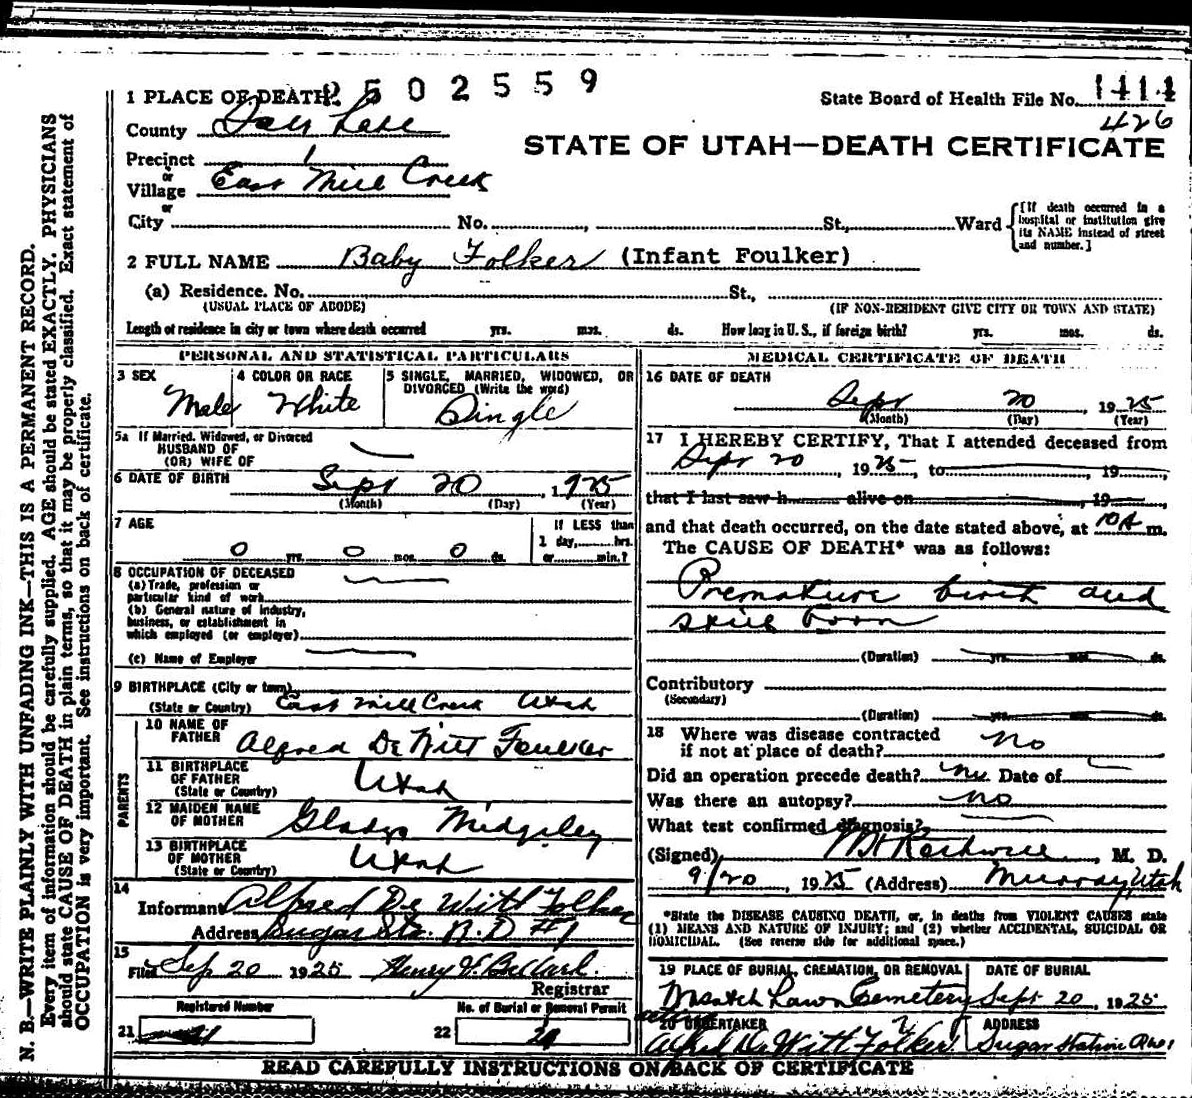 2502559
1 PLACE OF DEATH: State Board of Health File No. 1414
426
County Salt Lake
STATE OF UTAH—DEATH CERTIFICATE
Precinct 1
or
Village East Mill Creek
or
City No. , St., Ward {[If death occurred in a hospital or institution give its NAME instead of street and number.]
2 FULL NAME Baby Folker (Infant Foulker)
(a) Residence. No. St.,
(USUAL PLACE OF ABODE) (IF NON-RESIDENT GIVE CITY OR TOWN AND STATE)
Length of residence in city or town where death occurred yrs. mos. ds. How long in U. S., if foreign birth? yrs. mos. ds.
PERSONAL AND STATISTICAL PARTICULARS
3 SEX 4 COLOR OR RACE 5 SINGLE, MARRIED, WIDOWED, OR
DIVORCED (Write the word)
Male White Single
5a If Married, Widowed, or Divorced
HUSBAND OF
(OR) WIFE OF
6 DATE OF BIRTH Sept 20, 1925
(Month) (Day) (Year)
7 AGE If LESS than
1 day, hrs.
0 yrs. 0 mos. 0 ds. or min.?
8 OCCUPATION OF DECEASED
(a) Trade, profession or
particular kind of work
(b) General nature of industry,
business, or establishment in
which employed (or employer)
(c) Name of Employer
9 BIRTHPLACE (City or town)
(State or Country) East Mill Creek Utah
PARENTS
10 NAME OF
FATHER Alfred De Witt Faulker
11 BIRTHPLACE
OF FATHER
(State or Country) Utah
12 MAIDEN NAME
OF MOTHER Gladys Midgsley
13 BIRTHPLACE
OF MOTHER
(State or Country) Utah
14
Informant Alfred De Witt Folker
Address Sugar Sta. R. D #1
15
Filed Sep 20 1925 Henry V. Ballard.
Registrar
Registered Number No. of Burial or Removal Permit
21 22
MEDICAL CERTIFICATE OF DEATH
16 DATE OF DEATH
Sept 20, 1925
(Month) (Day) (Year)
17 I HEREBY CERTIFY, That I attended deceased from
Sept 20, 1925, to , 19 ,
that I last saw h alive on , 19
and that death occurred, on the date stated above, at 10 A m.
The CAUSE OF DEATH* was as follows:
Premature birth and
still born
(Duration) yrs. mos. ds.
Contributory
(Secondary)
(Duration) yrs. mos. ds.
18 Where was disease contracted
if not at place of death? no
Did an operation precede death? no. Date of
Was there an autopsy? no
What test confirmed diagnosis?
(Signed) , M. D.
9/20, 1925 (Address) Murray, Utah
*State the DISEASE CAUSING DEATH, or, in deaths from VIOLENT CAUSES state
(1) MEANS AND NATURE OF INJURY; and (2) whether ACCIDENTAL, SUICIDAL OR
HOMICIDAL. (See reverse side for additional space.)
19 PLACE OF BURIAL, CREMATION, OR REMOVAL DATE OF BURIAL
Wasatch Lawn Cemetery Sept 20, 1925
20 UNDERTAKER ADDRESS
Alfred De Witt Folker Sugar Station
READ CAREFULLY INSTRUCTIONS ON BACK OF CERTIFICATE
N. B.—WRITE PLAINLY WITH UNFADING INK—THIS IS A PERMANENT RECORD.
Every item of information should be carefully supplied. AGE should be stated EXACTLY. PHYSICIANS
should state CAUSE OF DEATH in plain terms, so that it may be properly classified. Exact statement of
OCCUPATION is very important. See instructions on back of certificate.